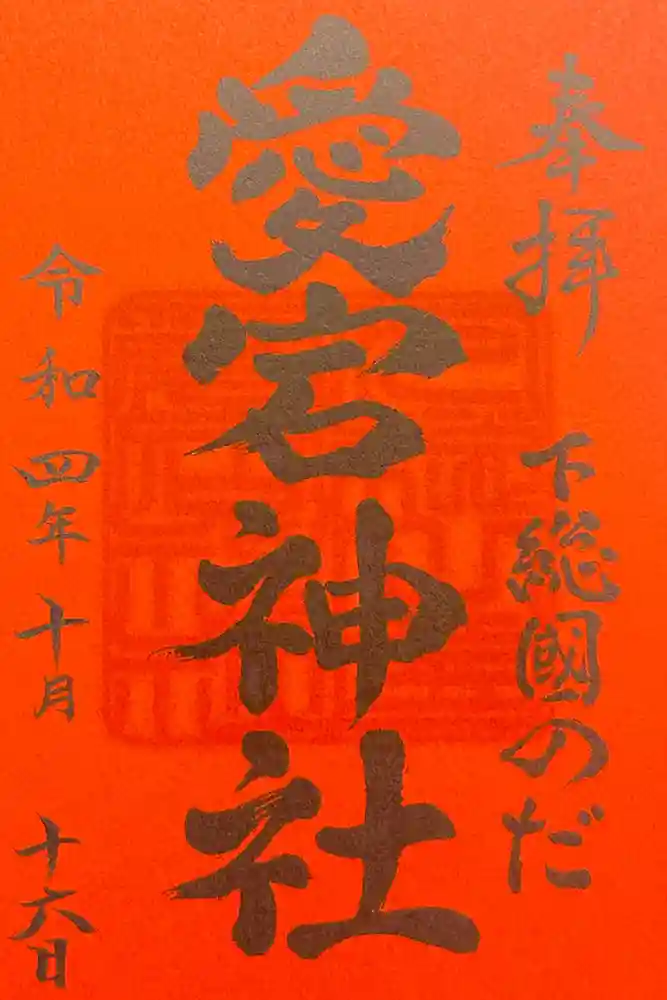 奉拝
下総國のだ
愛宕神社
令和四年十月十六日